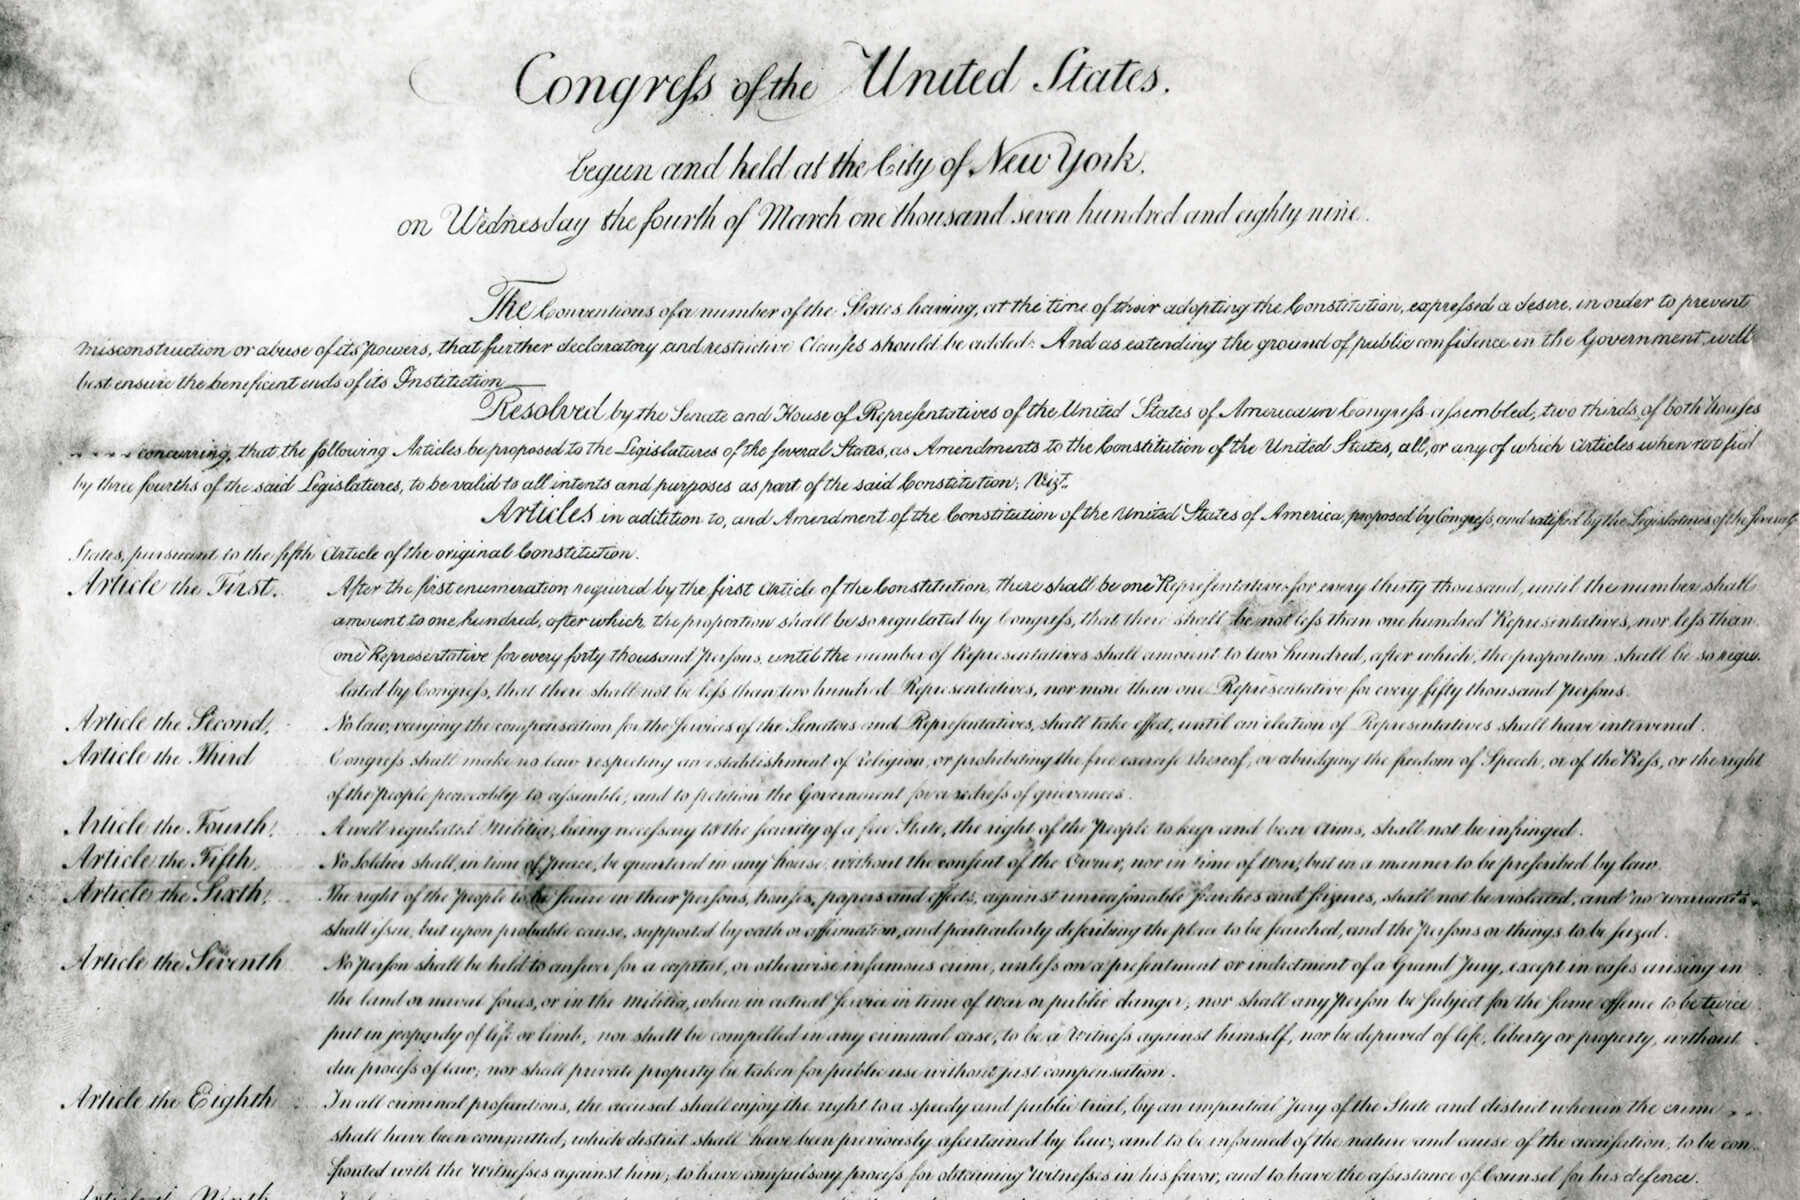 Congress of the United States.
begun and held at the City of New York.
on Wednesday the fourth of March one thousand seven hundred and eighty nine.
The Conventions of a number of the States having, at the time of their adopting the Constitution, expressed a desire, in order to prevent
misconstruction or abuse of its powers, that further declaratory and restrictive Clauses should be added: And as extending the ground of public confidence in the Government, will
best ensure the beneficent ends of its Institution
Resolved by the Senate and House of Representatives of the United States of America in Congress assembled, two thirds of both Houses
concurring, that the following Articles be proposed to the Legislatures of the several States, as Amendments to the Constitution of the United States, all, or any of which Articles when ratified
by three fourths of the said Legislatures, to be valid to all intents and purposes as part of the said Constitution; Vizt.
Articles in addition to, and Amendment of the Constitution of the United States of America, proposed by Congress, and ratified by the Legislatures of the several
States, pursuant to the fifth Article of the original Constitution.
Article the First. After the first enumeration required by the first Article of the Constitution, there shall be one Representative for every thirty thousand, until the number shall
amount to one hundred, after which, the proportion shall be so regulated by Congress, that there shall be not less than one hundred Representatives, nor less than
one Representative for every forty thousand persons, until the number of Representatives shall amount to two hundred, after which, the proportion shall be so regu-
lated by Congress, that there shall not be less than two hundred Representatives, nor more than one Representative for every fifty thousand persons.
Article the Second. No law, varying the compensation for the services of the Senators and Representatives, shall take effect, until an election of Representatives shall have intervened.
Article the Third Congress shall make no law respecting an establishment of religion, or prohibiting the free exercise thereof, or abridging the freedom of Speech, or of the Press, or the right
of the people peaceably to assemble, and to petition the Government for a redress of grievances.
Article the Fourth. A well regulated Militia, being necessary to the security of a free State, the right of the People to keep and bear Arms, shall not be infringed.
Article the Fifth. No Soldier shall, in time of peace, be quartered in any house, without the consent of the Owner, nor in time of war, but in a manner to be prescribed by law.
Article the Sixth. The right of the People to be secure in their persons, houses, papers and effects, against unreasonable searches and seizures, shall not be violated, and no warrants
shall issue, but upon probable cause, supported by oath or affirmation, and particularly describing the place to be searched, and the persons or things to be seized.
Article the Seventh No person shall be held to answer for a capital, or otherwise infamous crime, unless on a presentment or indictment of a Grand Jury, except in cases arising in
the land or naval forces, or in the Militia, when in actual service in time of War or public danger; nor shall any person be subject for the same offence to be twice
put in jeopardy of life or limb; nor shall be compelled in any criminal case, to be a Witness against himself, nor be deprived of life, liberty or property, without
due process of law; nor shall private property be taken for public use without just compensation.
Article the Eighth In all criminal prosecutions, the accused shall enjoy the right to a speedy and public trial, by an impartial Jury of the State and district wherein the crime
shall have been committed, which district shall have been previously ascertained by law, and to be informed of the nature and cause of the accusation, to be con-
fronted with the Witnesses against him; to have compulsory process for obtaining Witnesses in his favor, and to have the assistance of Counsel for his defence.